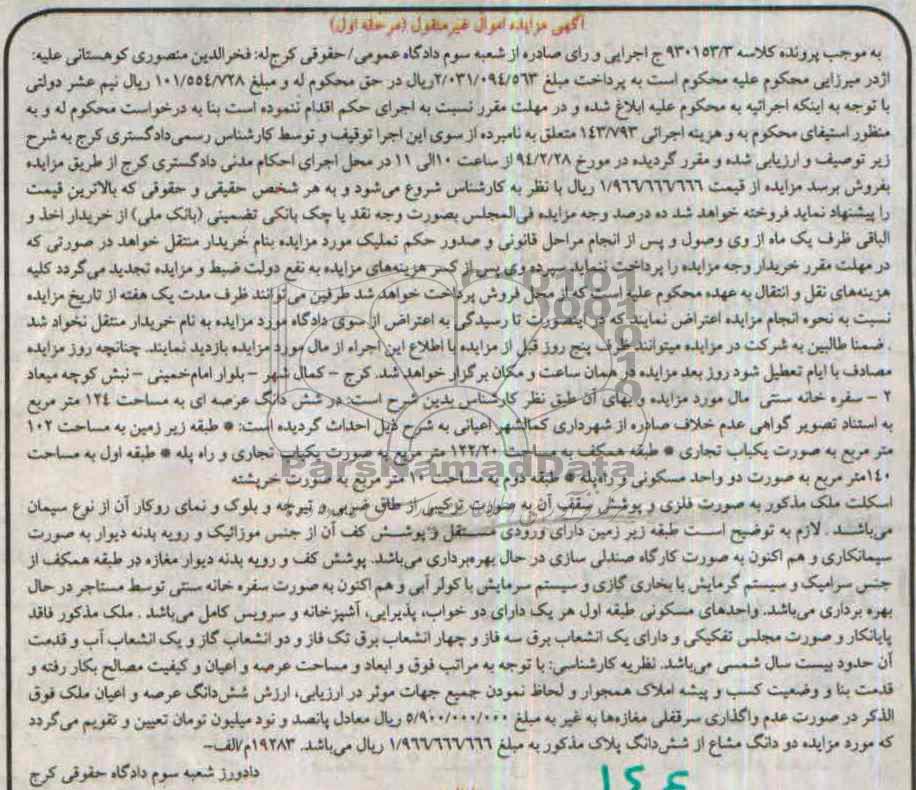 آگهی مزایده اموال غیرمنقول (مرحله اول)
به موجب پرونده کلاسه ۹۳۰۱۵۳/۳ ج اجرایی و رای صادره از شعبه سوم دادگاه عمومی/ حقوقی کرج له: فخرالدین منصوری کوهستانی علیه:
اژدر میرزایی محکوم علیه محکوم است به پرداخت مبلغ ۲/۰۳۱/۰۹۴/۵۶۳ریال در حق محکوم له و مبلغ ۱۰۱/۵۵٤/۷۲۸ ریال نیم عشر دولتی
با توجه به اینکه اجرائیه به محکوم علیه ابلاغ شده و در مهلت مقرر نسبت به اجرای حکم اقدام ننموده است بنا به درخواست محکوم له و به
منظور استیفای محکوم به و هزینه اجرائی ۱٤۳/۷۹۳ متعلق به نامبرده از سوی این اجرا توقیف و توسط کارشناس رسمی دادگستری کرج به شرح
زیر توصیف و ارزیابی شده و مقرر گردیده در مورخ ۹٤/۲/۲۸ از ساعت ۱۰الی ۱۱ در محل اجرای احکام مدنی دادگستری کرج از طریق مزایده
بفروش برسد مزایده از قیمت ۱/۹٦٦/٦٦٦/٦٦٦ ریال با نظر به کارشناس شروع می‌شود و به هر شخص حقیقی و حقوقی که بالاترین قیمت
را پیشنهاد نماید فروخته خواهد شد ده درصد وجه مزایده فی‌المجلس بصورت وجه نقد یا چک بانکی تضمینی (بانک ملی) از خریدار اخذ و
الباقی ظرف یک ماه از وی وصول و پس از انجام مراحل قانونی و صدور حکم تملیک مورد مزایده بنام خریدار منتقل خواهد در صورتی که
در مهلت مقرر خریدار وجه مزایده را پرداخت ننماید سپرده وی پس از کسر هزینه‌های مزایده به نفع دولت ضبط و مزایده تجدید می‌گردد کلیه
هزینه‌های نقل و انتقال به عهده محکوم علیه است که از محل فروش پرداخت خواهد شد طرفین می توانند ظرف مدت یک هفته از تاریخ مزایده
نسبت به نحوه انجام مزایده اعتراض نمایند که در اینصورت تا رسیدگی به اعتراض از سوی دادگاه مورد مزایده به نام خریدار منتقل نخواد شد
. ضمنا طالبین به شرکت در مزایده میتوانند ظرف پنج روز قبل از مزایده با اطلاع این اجراء از مال مورد مزایده بازدید نمایند. چنانچه روز مزایده
مصادف با ایام تعطیل شود روز بعد مزایده در همان ساعت و مکان برگزار خواهد شد. کرج – کمال شهر – بلوار امام خمینی – نبش کوچه میعاد
۲ – سفره خانه سنتی مال مورد مزایده و بهای آن طبق نظر کارشناس بدین شرح است: در شش دانگ عرصه ای به مساحت ۱۲٤ متر مربع
به استناد تصویر گواهی عدم خلاف صادره از شهرداری کمالشهر اعیانی به شرح ذیل احداث گردیده است: * طبقه زیر زمین به مساحت ۱۰۲
متر مربع به صورت یکباب تجاری * طبقه همکف به مساحت ۱۲۲/۲۰ متر مربع به صورت یکباب تجاری و راه پله * طبقه اول به مساحت
۱٤۰متر مربع به صورت دو واحد مسکونی و راه پله * طبقه دوم به مساحت ۱۰ متر مربع به صورت خرپشته
اسکلت ملک مذکور به صورت فلزی و پوشش سقف آن به صورت ترکیبی از طاق ضربی و تیرچه و بلوک و نمای روکار آن از نوع سیمان
می‌باشند . لازم به توضیح است طبقه زیر زمین دارای ورودی مستقل و پوشش کف آن از جنس موزائیک و رویه بدنه دیوار به صورت
سیمانکاری و هم اکنون به صورت کارگاه صندلی سازی در حال بهره‌برداری می‌باشد. پوشش کف و رویه بدنه دیوار مغازه در طبقه همکف از
جنس سرامیک و سیستم گرمایش با بخاری گازی و سیستم سرمایش با کولر آبی و هم اکنون به صورت سفره خانه سنتی توسط مستاجر در حال
بهره برداری می‌باشد. واحدهای مسکونی طبقه اول هر یک دارای دو خواب، پذیرایی، آشپزخانه و سرویس کامل می‌باشد . ملک مذکور فاقد
پایانکار و صورت مجلس تفکیکی و دارای یک انشعاب برق سه فاز و چهار انشعاب برق تک فاز و دو انشعاب گاز و یک انشعاب آب و قدمت
آن حدود بیست سال شمسی می‌باشد. نظریه کارشناسی: با توجه به مراتب فوق و ابعاد و مساحت عرصه و اعیان و کیفیت مصالح بکار رفته و
قدمت بنا و وضعیت کسب و پیشه املاک همجوار و لحاظ نمودن جمیع جهات موثر در ارزیابی، ارزش شش‌دانگ عرصه و اعیان ملک فوق
الذکر در صورت عدم واگذاری سرقفلی مغازه‌ها به غیر به مبلغ ۵/۹۰۰/۰۰۰/۰۰۰ ریال معادل پانصد و نود میلیون تومان تعیین و تقویم می‌گردد
که مورد مزایده دو دانگ مشاع از شش‌دانگ پلاک مذکور به مبلغ ۱/۹٦٦/٦٦٦/٦٦٦ ریال می‌باشد. ۱۹۲۸۳م/الف–
دادورز شعبه سوم دادگاه حقوقی کرج
ParsNamadData